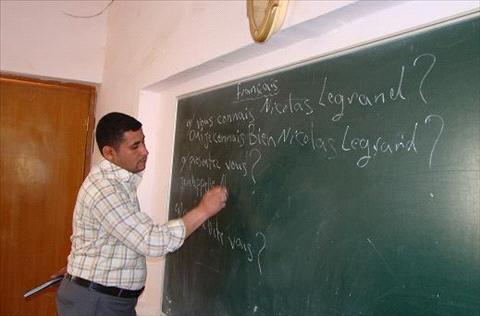 Français
vous connais Nicolas Legrand?
Oui je connais Bien Nicolas Legrand?
présentez vous?
vous?